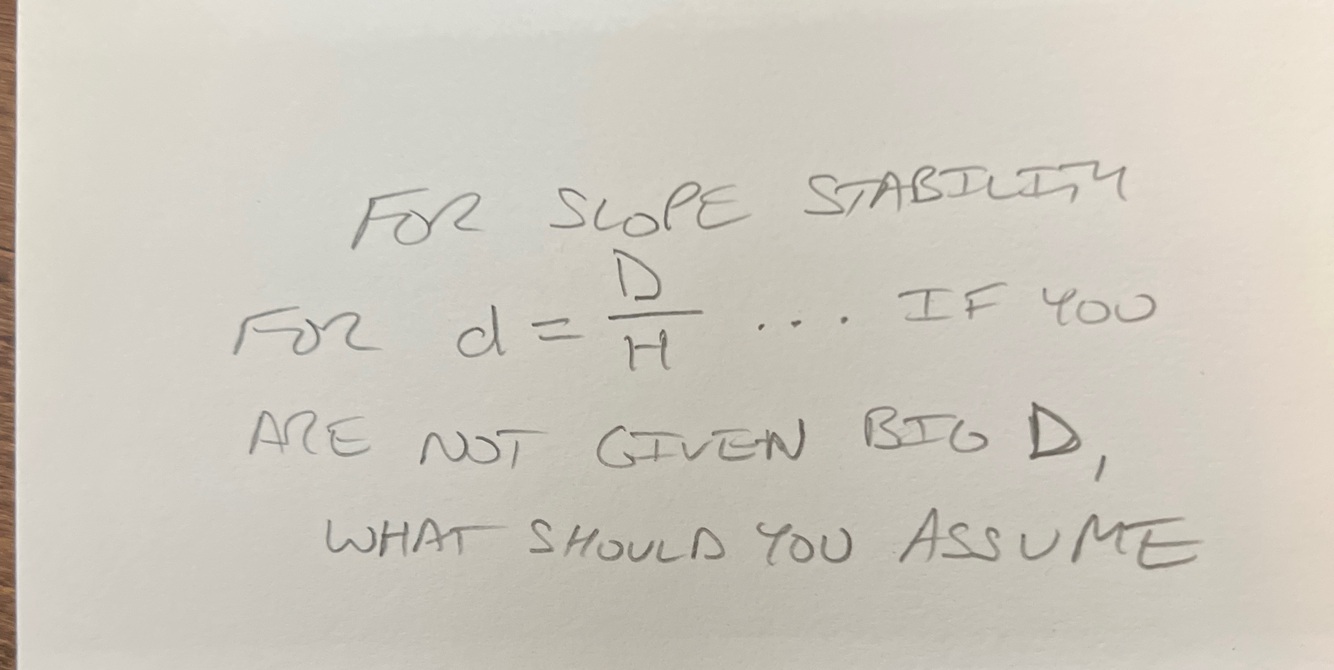 FOR SLOPE STABILITY
FOR d = D/H ... IF YOU
ARE NOT GIVEN BIG D,
WHAT SHOULD YOU ASSUME